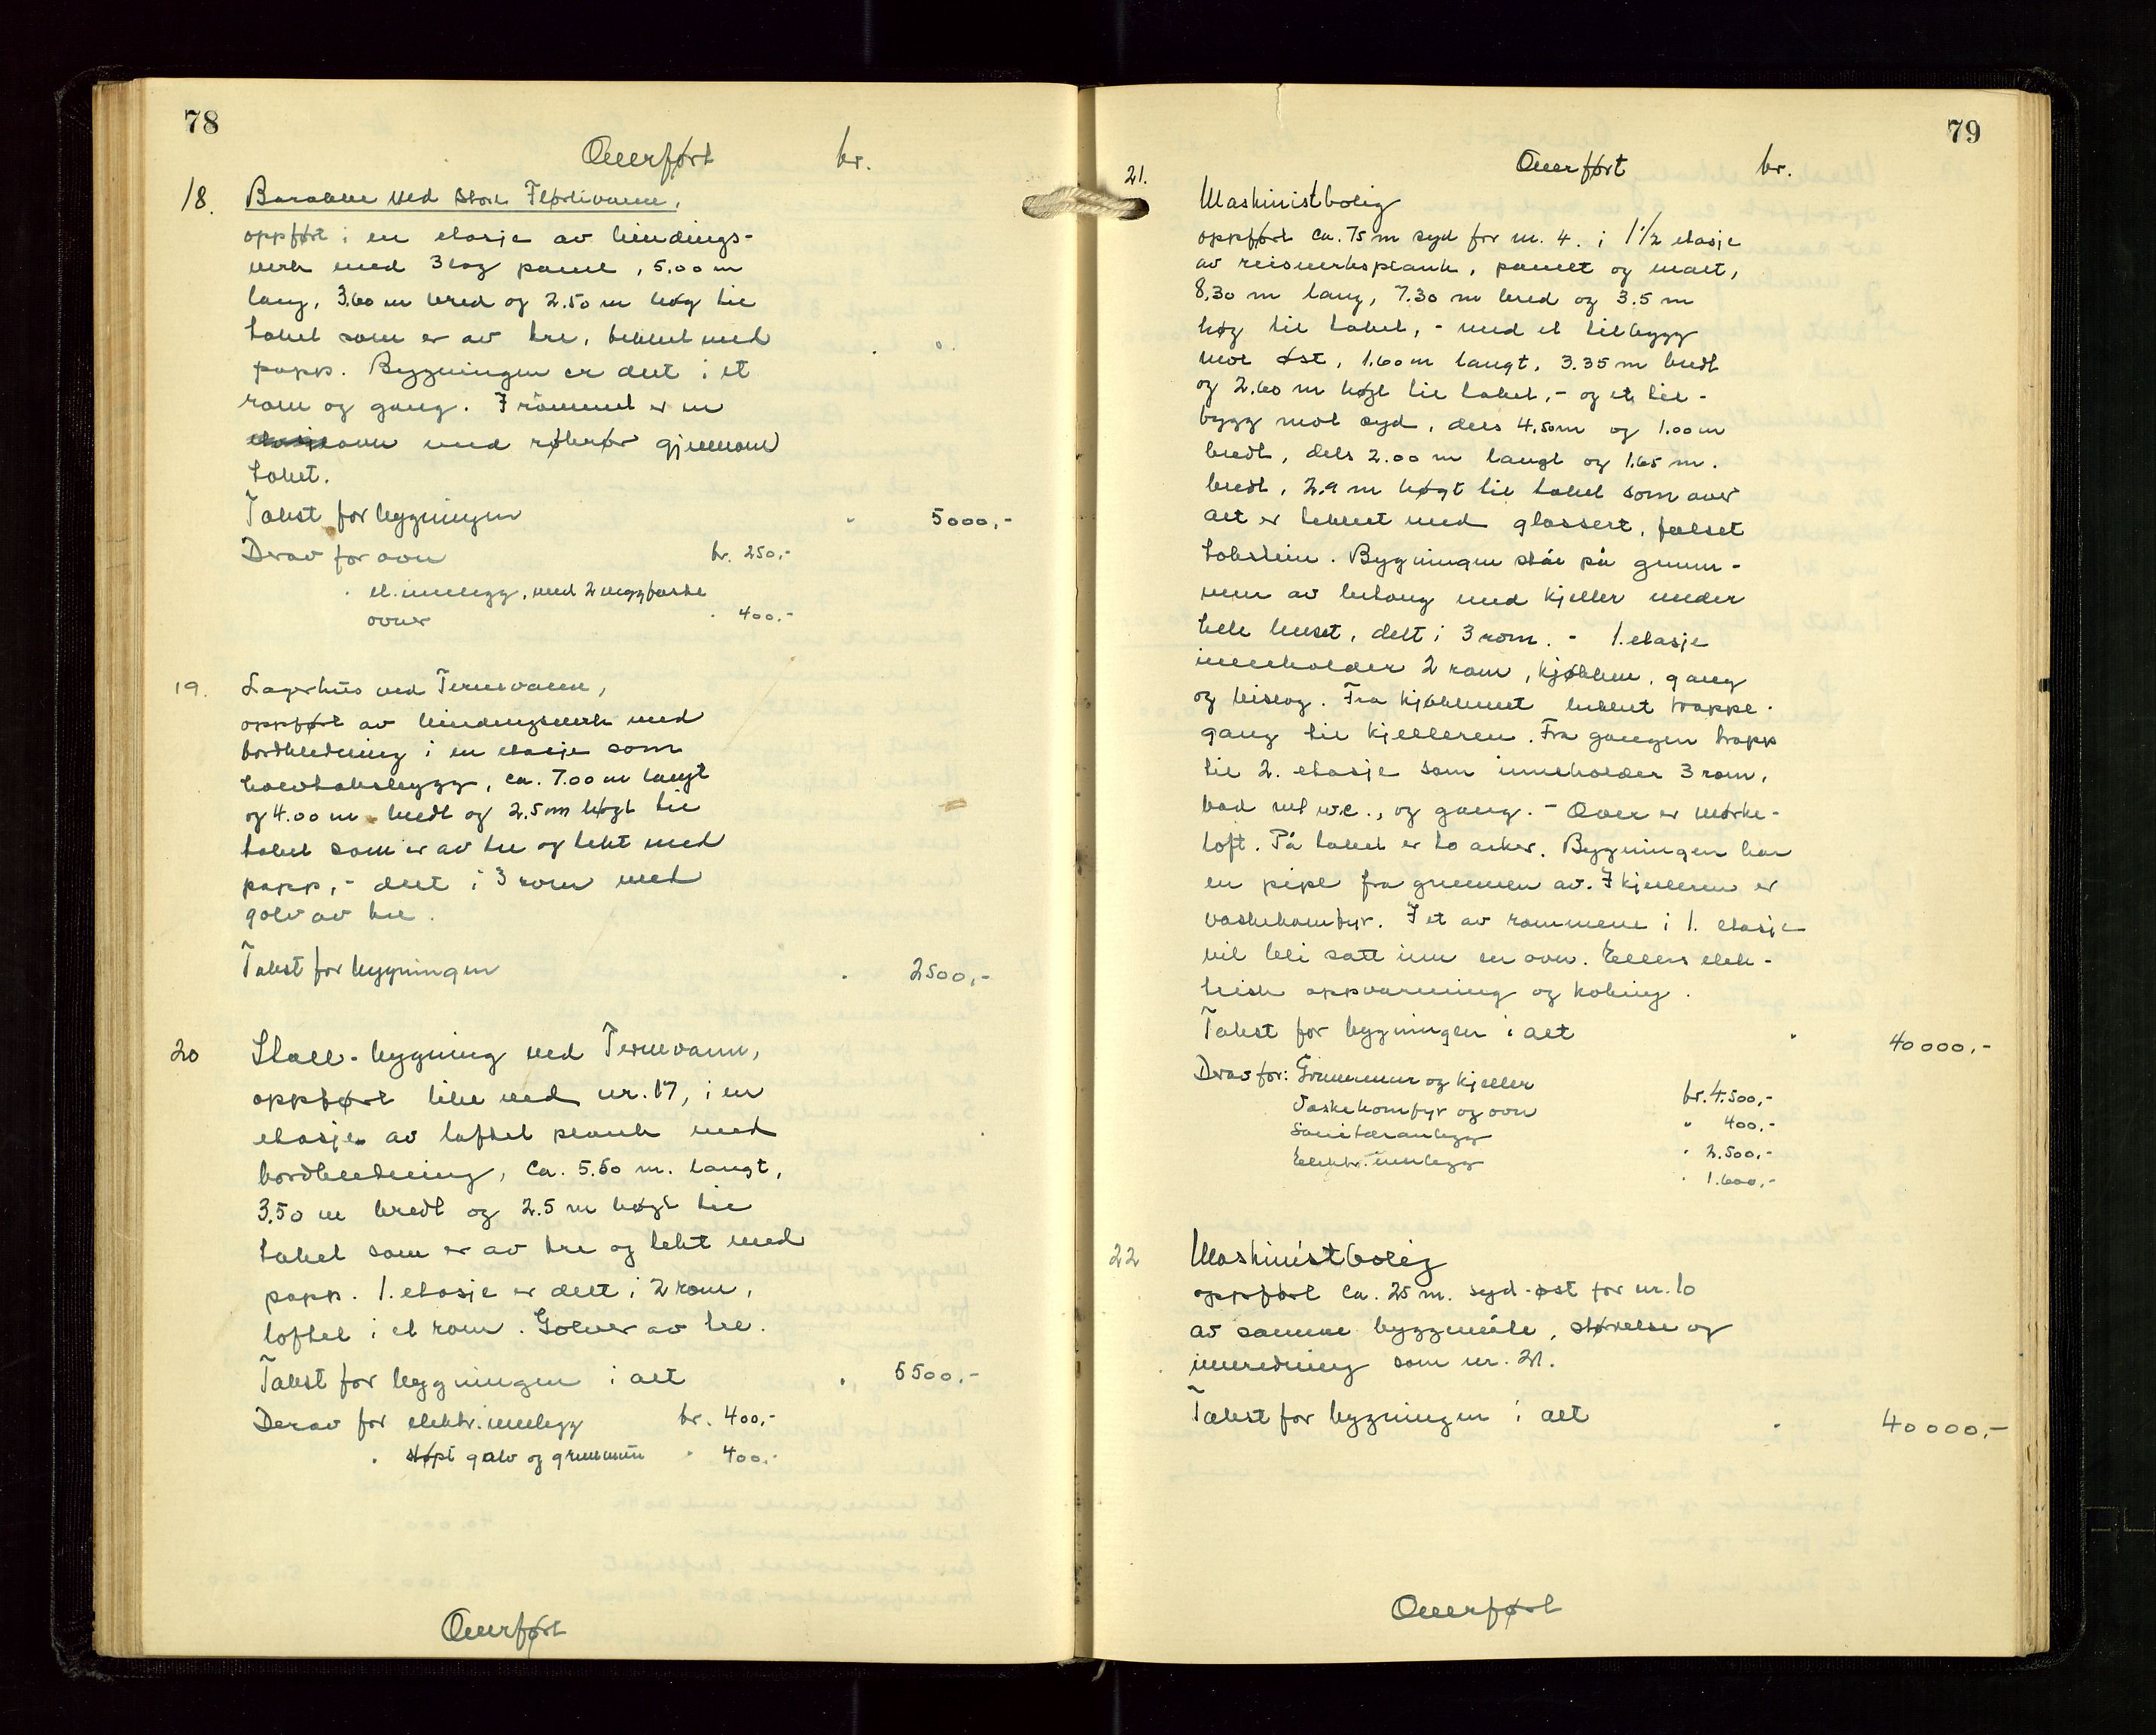 78
Overført kr.
18. Barakke ved Store Flørlivann,
oppført i en etasje av bindings-
verk med 3 lag panel, 5.00 m
lang, 3.60 m bred og 2.50 m høg til
taket som er av tre, tekket med
papp. Bygningen er delt i et
rom og gang. I rommet er en
ovn med røkrør gjennom
taket.
Takst for bygningen " 5000,-
Derav for ovn kr. 250,-
" el. innlegg, med 2 veggfaste
ovner " 400,-
19. Lagerhus ved Ternevann,
oppført av bindingsverk med
bordkledning i en etasje som
halvtaksbygg, ca. 7.00 m langt
og 4.00 m bredt og 2.5 m høgt til
taket som er av tre og tekt med
papp, - delt i 3 rom med
golv av tre.
Takst for bygningen " 2500,-
20 Stall-bygning ved Ternevann,
oppført like ved nr. 17, i en
etasje av laftet plank med
bordkledning, ca. 5.50 m. langt,
3.50 m bredt og 2.5 m høgt til
taket som er av tre og tekt med
papp. 1. etasje er delt i 2 rom,
loftet i et rom. Golver av tre.
Takst for bygningen i alt " 5500,-
Derav for elektr. innlegg kr. 400,-
" støpt golv og grunnmur " 400,-
Overført
79
Overført kr.
21. Maskinistbolig
oppført ca. 75 m syd for nr. 4. i 1 1/2 etasje
av reisverksplank, panelt og malt,
8.30 m lang, 7.30 m bred og 3.5 m
høg til taket, - med et tilbygg
mot øst, 1.60 m langt, 3.35 m bredt
og 2.60 m høgt til taket, - og et til-
bygg mot syd, dels 4.50 m og 1.00 m
bredt, dels 2.00 m langt og 1.65 m.
bredt, 2.9 m høgt til taket som over
alt er tekket med glassert, falset
takstein. Bygningen står på grunn-
mur av betong med kjeller under
hele huset, delt i 3 rom. - 1. etasje
inneholder 2 rom, kjøkken, gang
og bislag. Fra kjøkkenet lukket trappe-
gang til kjelleren. Fra gangen trapp
til 2. etasje som inneholder 3 rom,
bad m/ w.c., og gang. - Over er mørke-
loft. På taket er to arker. Bygningen har
en pipe fra grunnen av. I kjelleren er
vaskekomfyr. I et av rommene i 1. etasje
vil bli satt inn en ovn. Ellers elek-
trisk oppvarming og koking.
Takst for bygningen i alt " 40000,-
Derav for: Grunnmur og kjeller kr. 4.500,-
Vaskekomfyr og ovn " 400,-
Sanitæranlegg " 2.500,-
Elektr. innlegg " 1.600,-
22 Maskinistbolig
oppført ca. 25 m. syd-øst for nr. 10
av samme byggemåte, størrelse og
innredning som nr. 21.
Takst for bygningen i alt " 40000,-
Overført